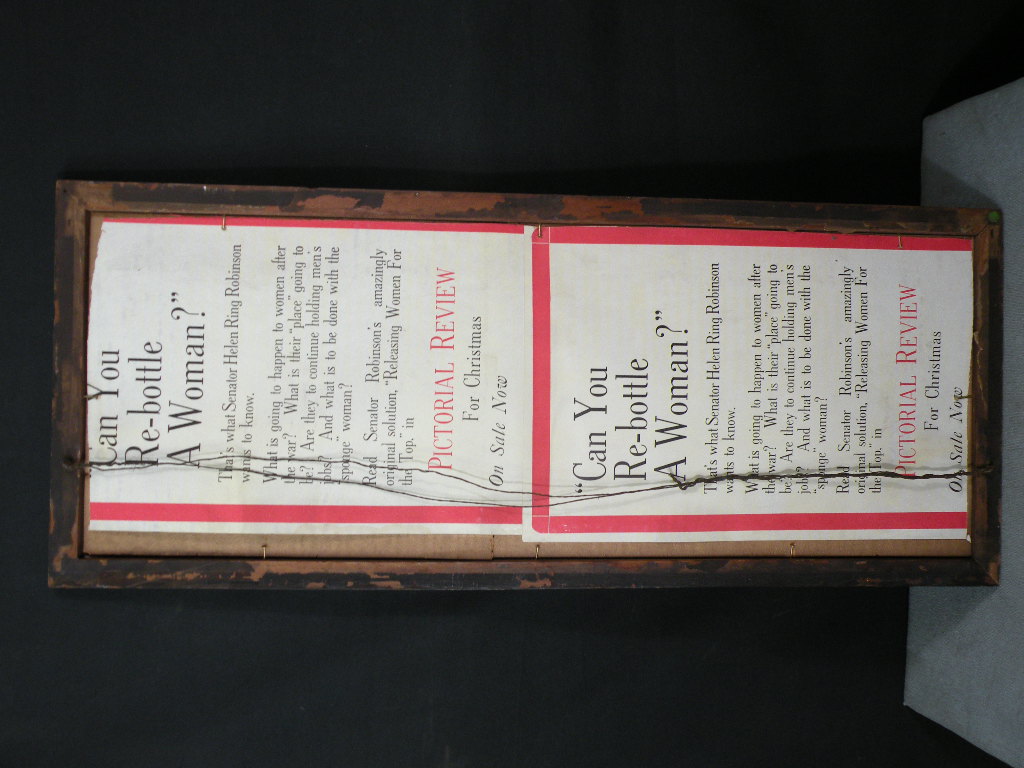 Can You
Re-bottle
A Woman?”
That's what Senator Helen Ring Robinson
wants to know.
What is going to happen to women after
the war? What is their “place” going to
be? Are they to continue holding men's
jobs? And what is to be done with the
“sponge” woman?
Read Senator Robinson's amazingly
original solution, “Releasing Women For
the Top,” in
PICTORIAL REVIEW
For Christmas
On Sale Now
“Can You
Re-bottle
A Woman?”
That's what Senator Helen Ring Robinson
wants to know.
What is going to happen to women after
the war? What is their “place” going to
be? Are they to continue holding men's
jobs? And what is to be done with the
“sponge” woman?
Read Senator Robinson's amazingly
original solution, “Releasing Women For
the Top,” in
PICTORIAL REVIEW
For Christmas
On Sale Now